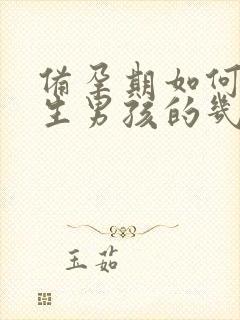 备孕期如何
生男孩的几
玉茹